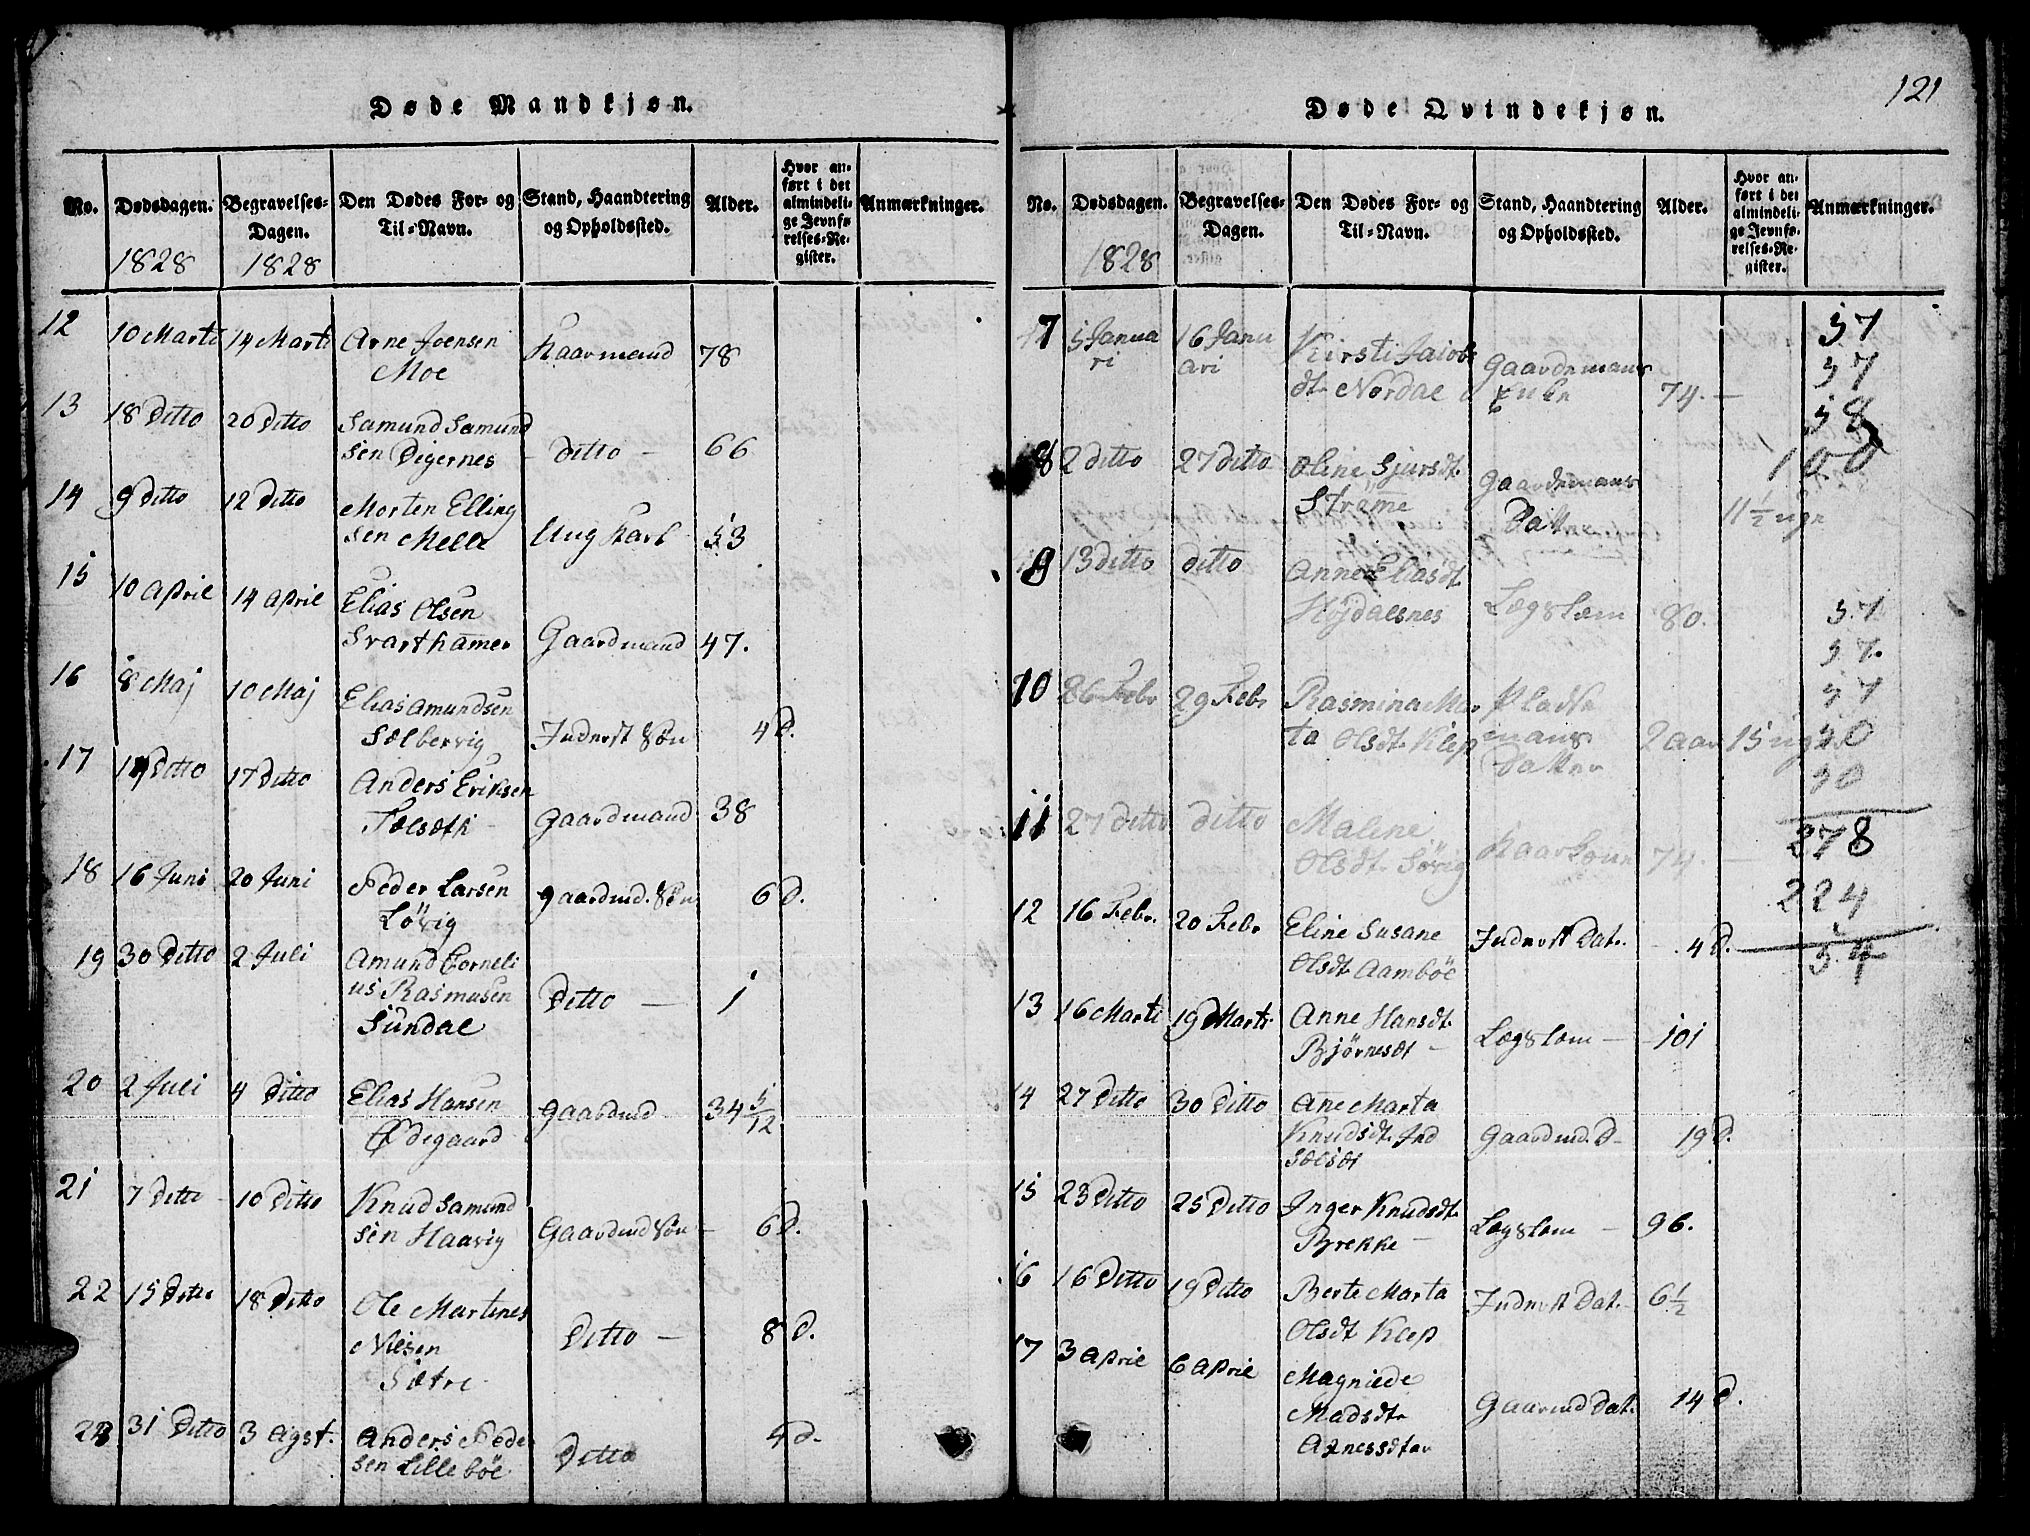 Døde Mandkjøn.
No. Dødsdagen. Begravelses-Dagen. Den Dødes For- og Til-Navn. Stand, Haandtering og Opholdssted. Alder. Hvor anført i det almindelige Jevnførelses-Register. Anmærkninger.
1828 1828
12 10 Marti 14 Marti Arne Joensen Kaarmand 78
Moe
13 18 Ditto 20 Ditto Samund Samund
sen Digernes - ditto - 66
14 9 Ditto 12 Ditto Morten Elling
sen Melle Ung Karl 53
15 10 April 14 April Elias Olsen
Svarthamer Gaardmand 47.
16 8 Maj 10 Maj Elias Amundsen
Sølbervig Inderst Søn 4 D.
17 Ditto 17 Ditto Anders Eriksen
Gaardmand 38
18 16 Juni 20 Juni Peder Larsen gaardmd. Søn 6 D.
Løvig
19 30 Ditto 2 Juli Amund Corneli
us Rasmusen Ditto - 1
Sundal
20 2 Juli 4 Ditto Elias Hansen gaardmd 34 5/12
Ødegaard
21 7 Ditto 10 Ditto Knud Samund
sen Haavig Gaardmd Søn - 6 D.
22 15 Ditto 18 Ditto Ole Martines
Nilsen Ditto - 8 D.
Sætre
23 31 Ditto 3 Agst. Anders Peder
sen Lillebøe Ditto 4 D.
121
Døde Qvindekjøn.
No. Dødsdagen. Begravelses-Dagen. Den Dødes For- og Til-Navn. Stand, Haandtering og Opholdssted. Alder. Hvor anført i det almindelige Jevnførelses-Register. Anmærkninger.
1828
7 5 Janua 16 Janu Kirsti Jaiobs Gaardemans 57
ri ari dt. Nordal Enke 74. - 57
58
8 2 ditto 27 ditto Oline Sjursdt. Gaardemans 100
Strømme Datter 11 1/2 uge
9 13 ditto ditto Anne Eliasdt.
Højdalsnes Lægslem 80. 57
57.
10 26 Febr 29 Febr Rasmina Mar Pladse 57
ta Olsdt. Klep mans 2 aar 15 uger 50
Datter 50
11 27 ditto ditto Maline
Olsdt. Søvig Kaarkone 74. - 278
224
12 16 Febr. 20 Febr Eline Susane Inderst Dat. - 4 D. 54
Olsdt Aambøe
13 16 Marti 19 Marti Anne Hansdt.
Bjørnesdt - Lægslem - 101
14 27 Ditto 30 Ditto Ane Marta
Knudsdt. Ind Gaardmd. D- 19 D.
15 23 Ditto 25 Ditto Inger Knudsdt.
Brekke - Lægslem - 96.
16 16 Ditto 19 Ditto Berte Marta Inderst Dat. 6 1/2
Olsdt Klep
17 3 April 6 April Magniede
Madsdt. Gaarmd Dat. 14 D.